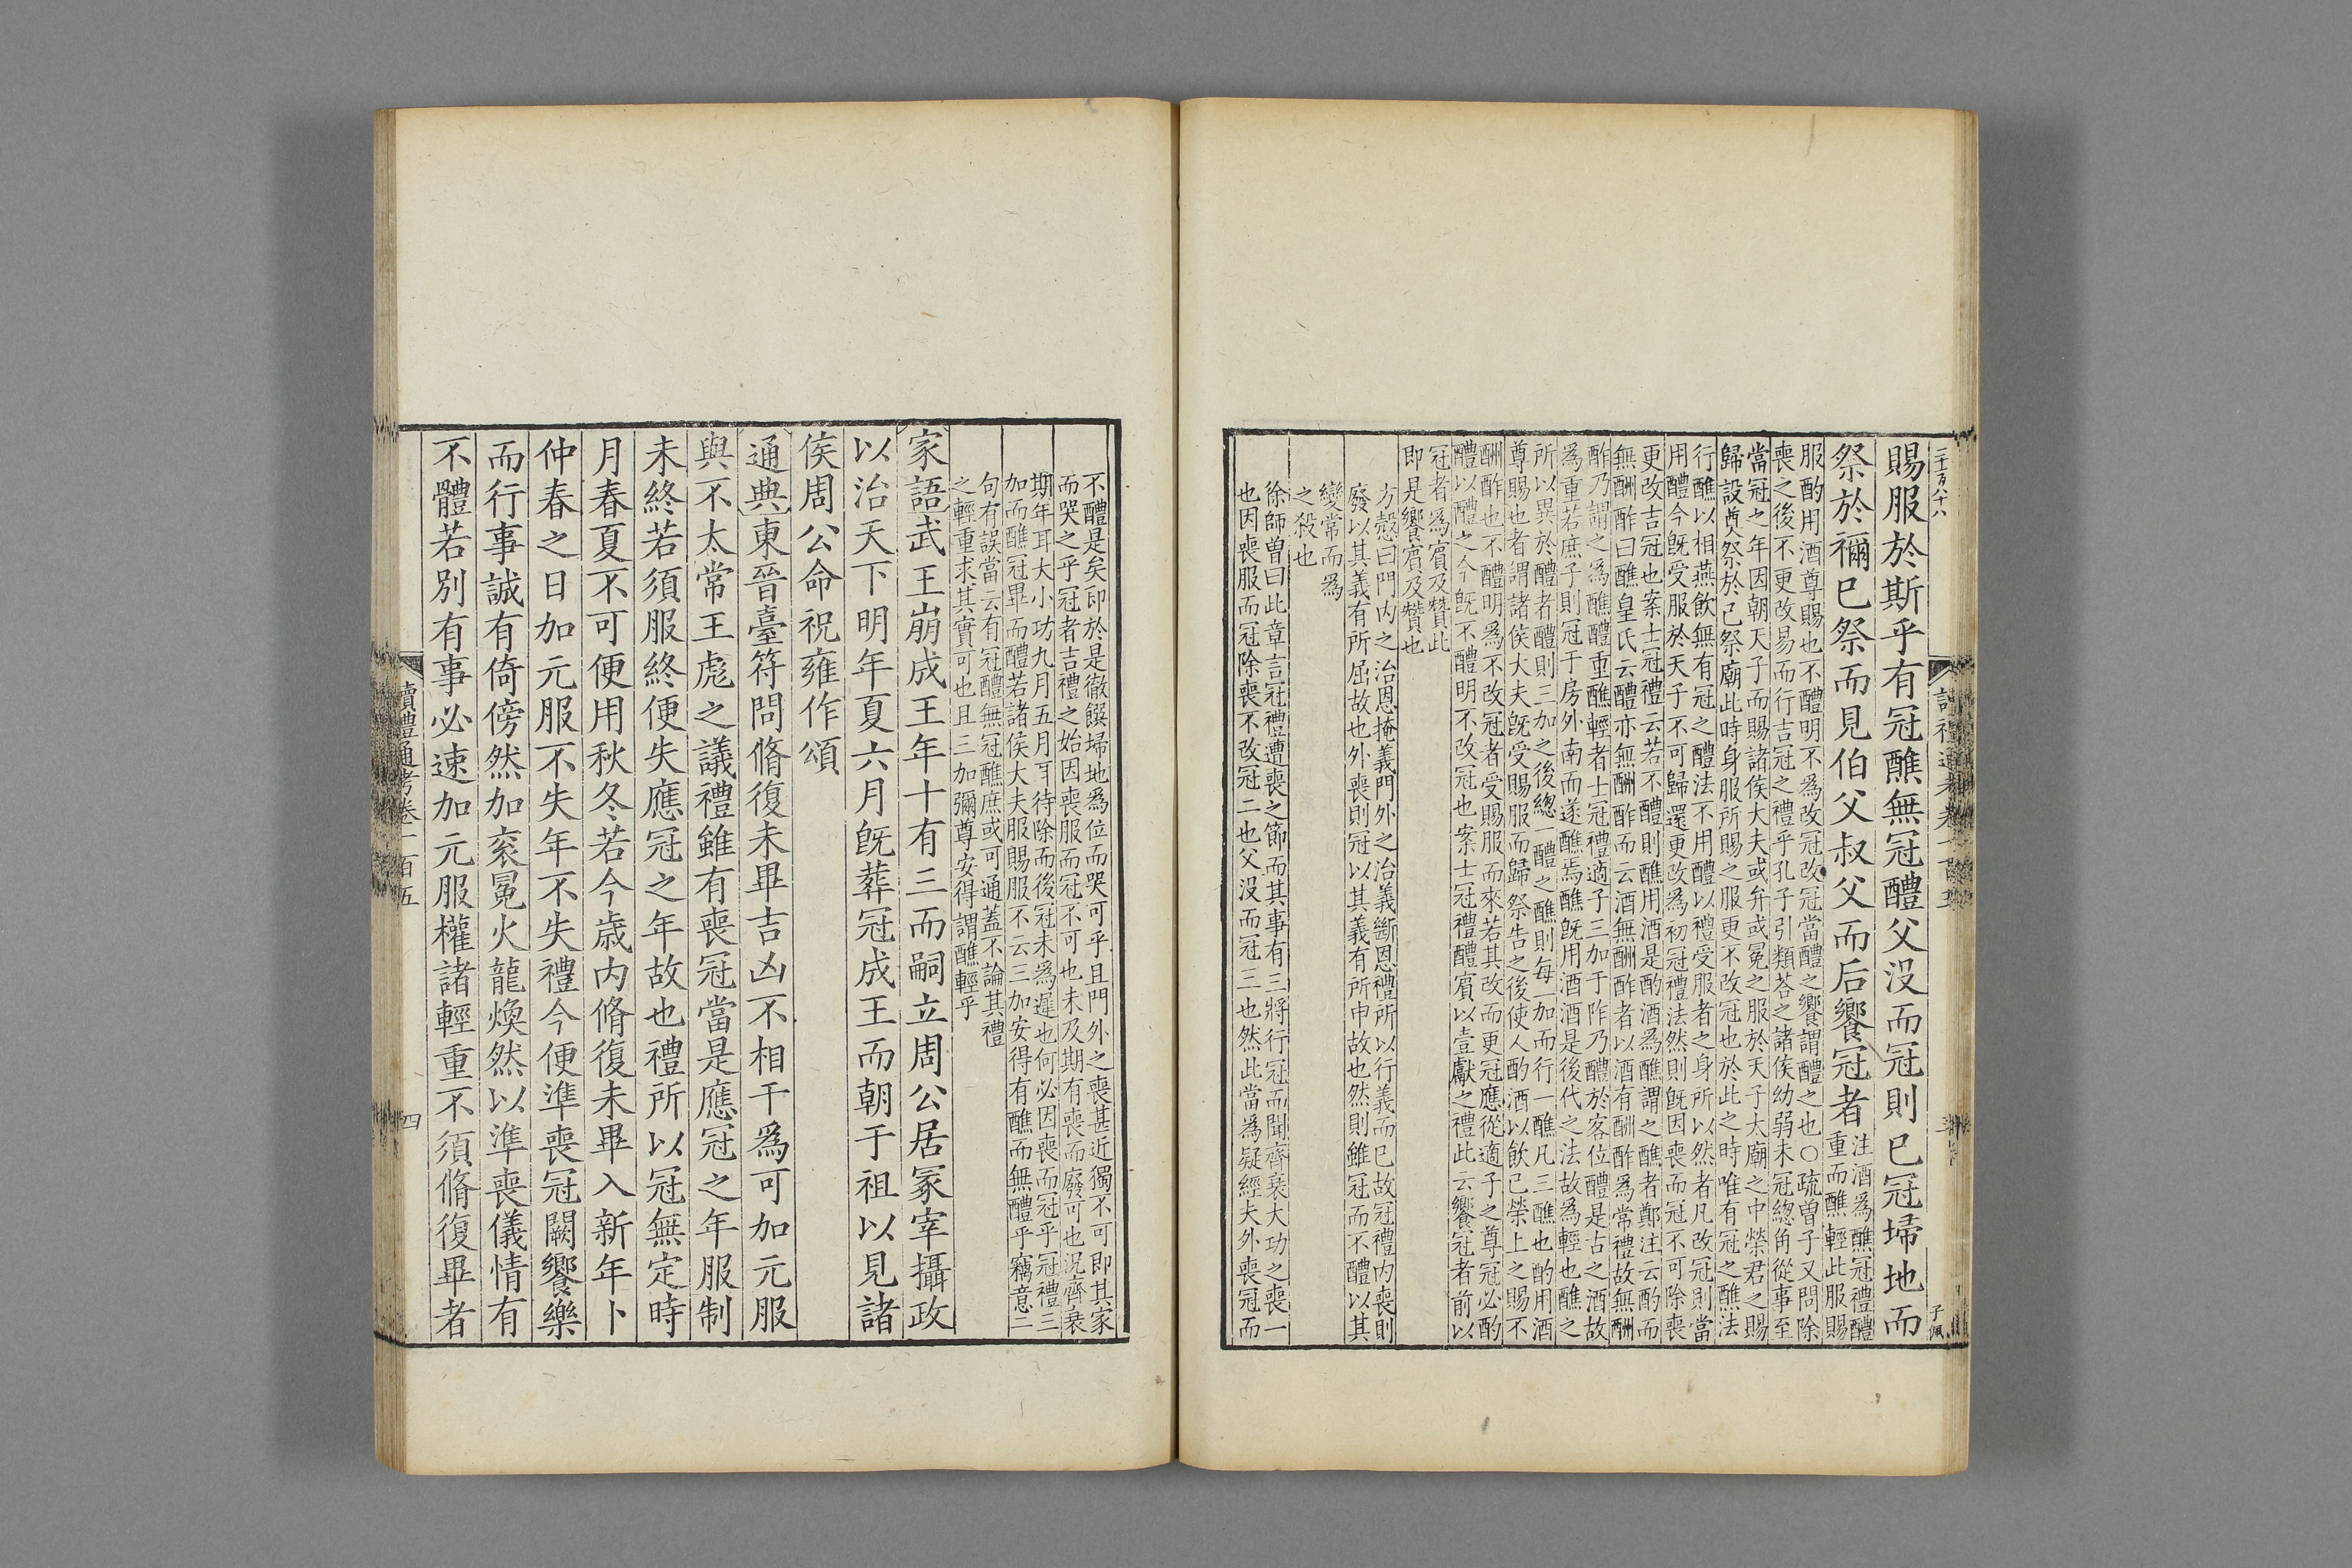 賜服於斯乎有冠醮無冠醴父没而冠則已冠埽地而
祭於禰已祭而見伯父叔父而后饗冠者
注酒為醮冠禮醴
重而醮輕此服賜
服酌用酒尊賜也不醴明不為改冠改冠當醴之饗謂醴之也○疏曾子又問除
喪之後不更改易而行吉冠之禮乎孔子引類荅之諸侯幼弱未冠緫角從事至
當冠之年因朝天子而賜諸侯大夫或弁或冕之服於天子大廟之中榮君之賜
歸設奠祭於己祭廟此時身服所賜之服更不改冠也於此之時唯有冠之醮法
行醮以相燕飲無有冠之醴法不用醴以禮受服者之身所以然者凡改冠則當
用醴今旣受服於天子不可歸還更改為初冠禮法然則旣因喪而冠不可除喪
更改吉冠也案士冠禮云若不醴則醮用酒是酌酒為醮謂之醮者鄭注云酌而
無酬酢曰醮皇氏云醴亦無酬酢而云酒無酬酢者以酒有酬酢為常禮故無酬
酢乃謂之為醮醴重醮輕者士冠禮適子三加于阼乃醴於客位醴是古之酒故
為重若庶子則冠于房外南而遂醮焉醮旣用酒酒是後代之法故為輕也醮之
所以異於醴者醴則三加之後總一醴之醮則每一加而行一醮凡三醮也酌用酒
尊賜也者謂諸侯大夫旣受賜服而歸祭告之後使人酌酒以飲已榮上之賜不
酬酢也不醴明為不改冠者受賜服而來若其改而更冠應從適子之尊冠必酌
醴以醴之今旣不醴明不改冠也案士冠禮醴賓以壹獻之禮此云饗冠者前以
冠者為賓及贊此
即是饗賓及贊也
方慤曰門内之治恩掩義門外之治義斷恩禮所以行義而已故冠禮内喪則
廢以其義有所屈故也外喪則冠以其義有所申故也然則雖冠而不醴以其
變常而為
之殺也
徐師曾曰此章言冠禮遭喪之節而其事有三將行冠而聞齊衰大功之喪一
也因喪服而冠除喪不改冠二也父没而冠三也然此當為疑經夫外喪冠而
不醴是矣卽於是徹饌埽地為位而哭可乎且門外之喪甚近獨不可即其家
而哭之乎冠者吉禮之始因喪服而冠不可也未及期有喪而廢可也況齊衰
期年耳大小功九月五月耳待除而後冠未為遲也何必因喪而冠乎冠禮三
加而醮冠畢而醴若諸侯大夫服賜服不云三加安得有醮而無醴乎竊意二
句有誤當云有冠醴無冠醮庶或可通蓋不論其禮
之輕重求其實可也且三加彌尊安得謂醮輕乎
家語武王崩成王年十有三而嗣立周公居冢宰攝政
以治天下明年夏六月旣葬冠成王而朝于祖以見諸
侯周公命祝雍作頌
通典東晉臺符問脩復未畢吉凶不相干為可加元服
與不太常王彪之議禮雖有喪冠當是應冠之年服制
未終若須服終便失應冠之年故也禮所以冠無定時
月春夏不可便用秋冬若今歲内脩復未畢入新年卜
仲春之日加元服不失年不失禮今便準喪冠闕饗樂
而行事誠有倚傍然加衮冕火龍煥然以準喪儀情有
不體若別有事必速加元服權諸輕重不須脩復畢者
讀禮通考卷一百五
四